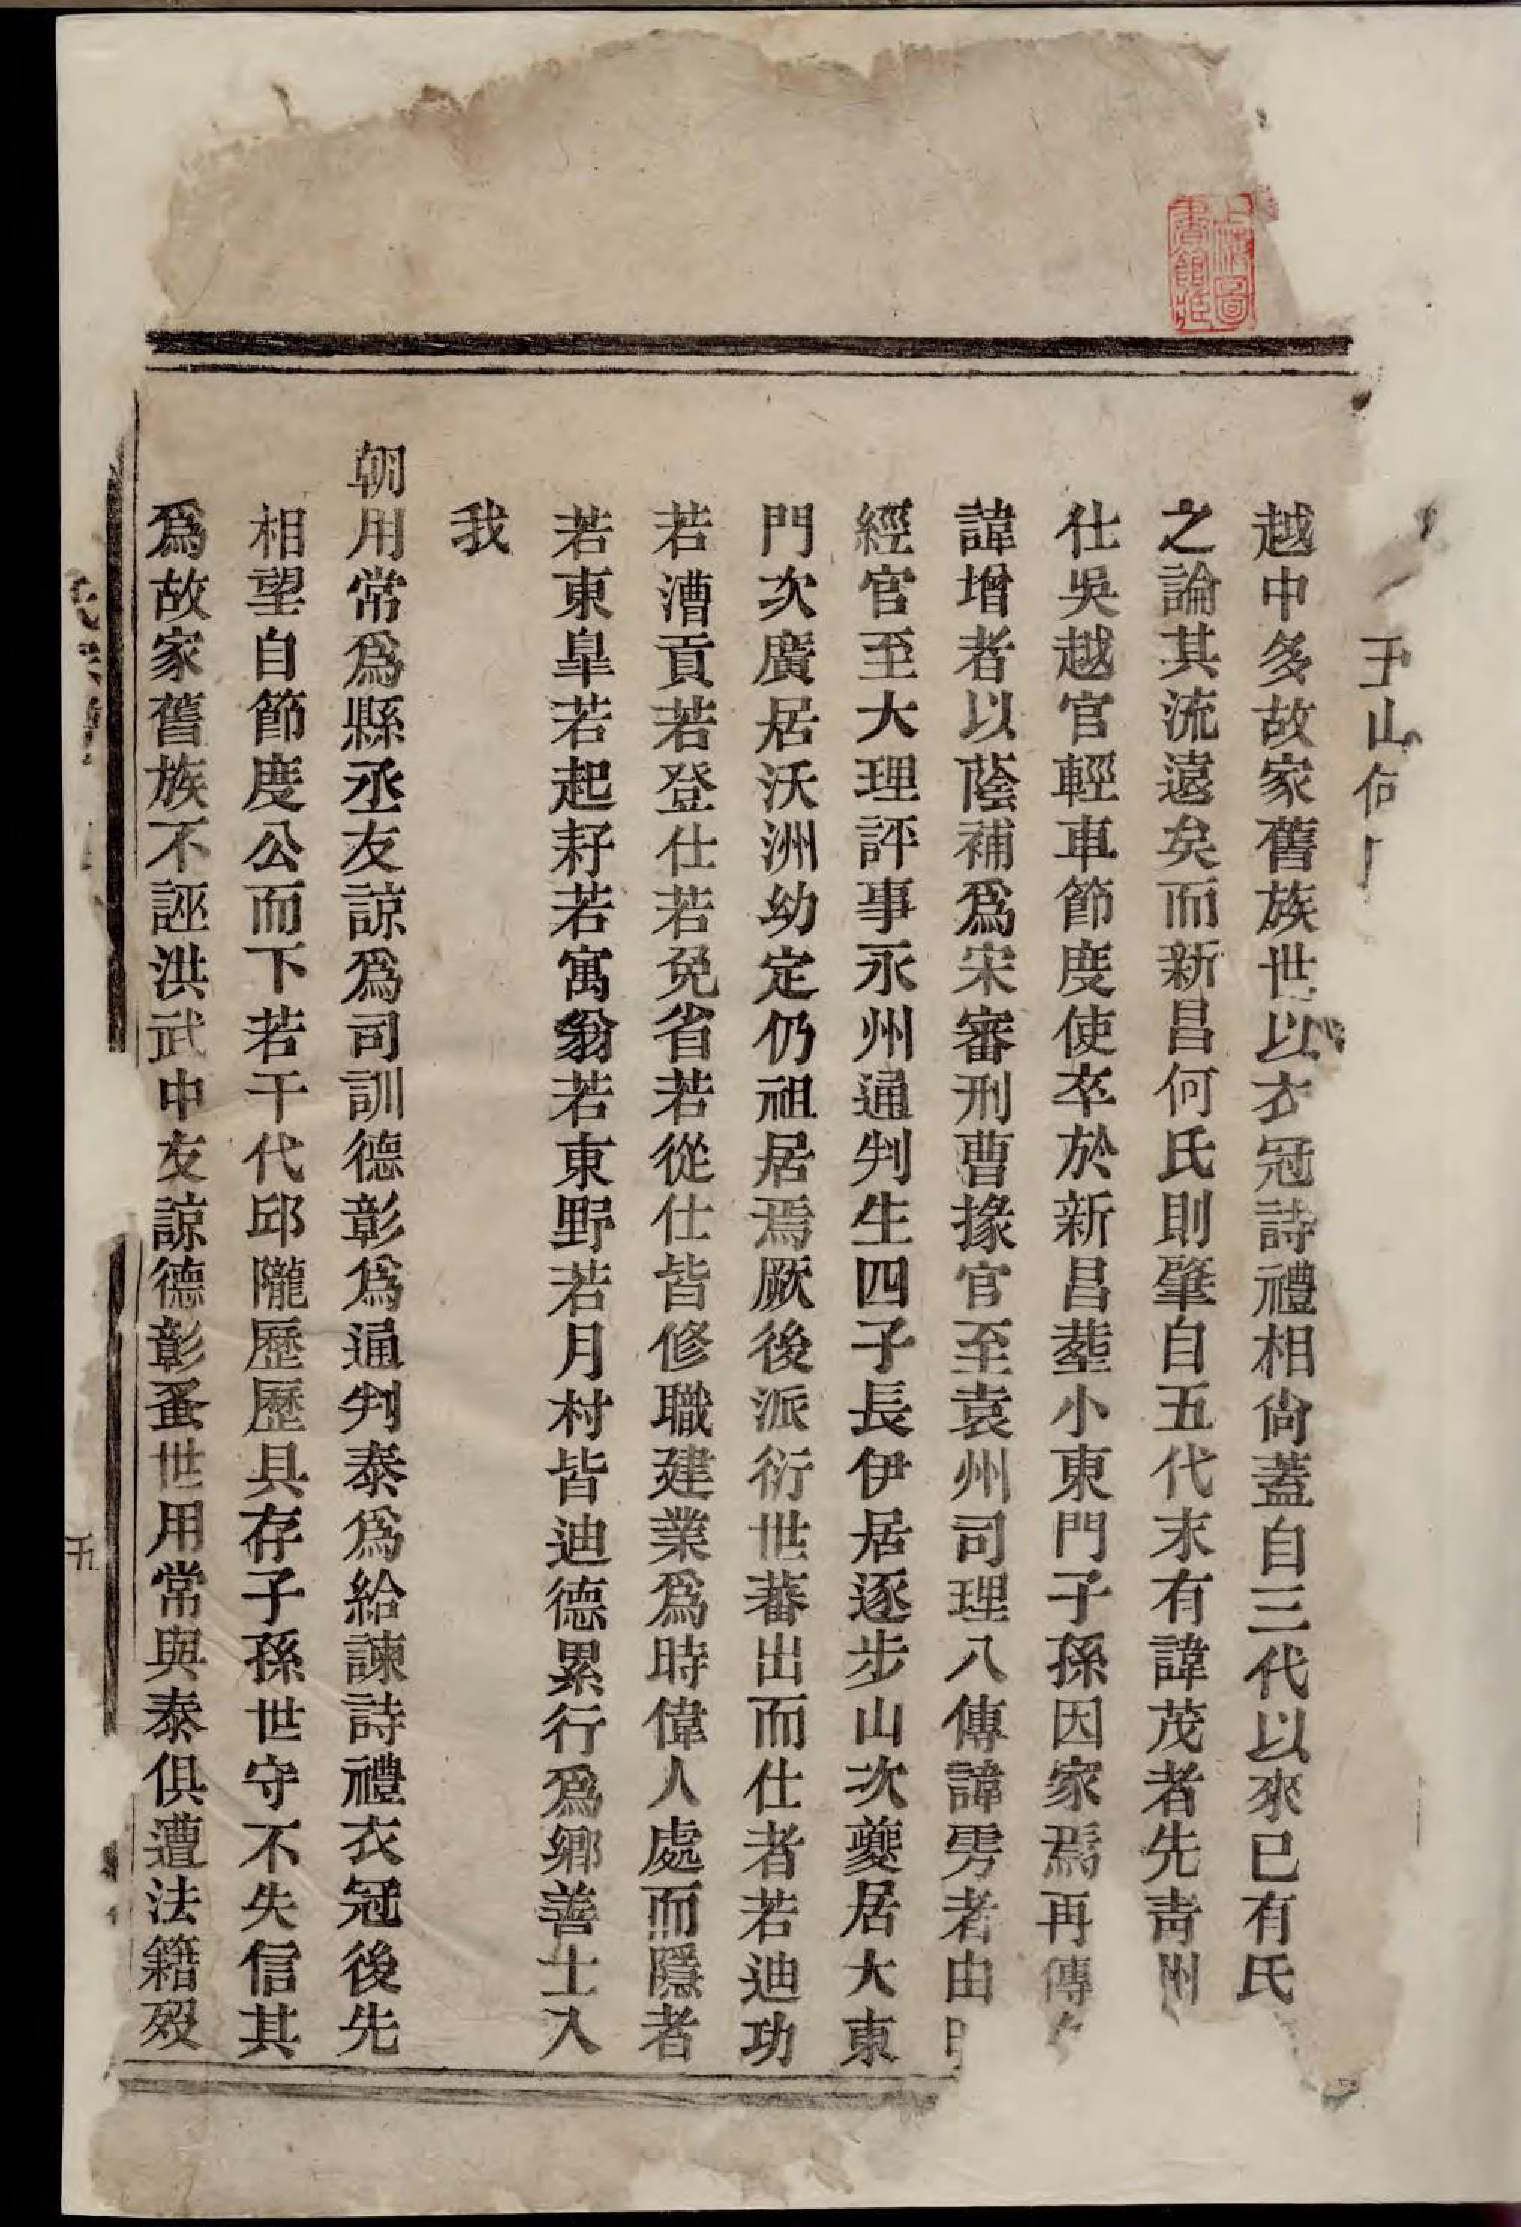 玉山何
越中多故家舊族世以衣冠詩禮相尙蓋自三代以來已有氏
之論其流遠矣而新昌何氏則肇自五代末有諱茂者先靑州
仕吳越官輕車節度使卒於新昌塟小東門子孫因家焉再傳
諱增者以蔭補爲宋審刑曹掾官至袁州司理八傳諱雱者由
經官至大理評事永州通判生四子長伊居逐步山次夔居大東
門次廣居沃洲幼定仍祖居焉厥後派衍世蕃出而仕者若迪功
若漕貢若登仕若免省若從仕皆修職建業爲時偉人處而隱者
若東皐若起耔若寓翁若東野若月村皆迪德累行爲鄉善士入
我
朝用常爲縣丞友諒爲司訓德彰爲通判泰爲給諫詩禮衣冠後先
相望自節度公而下若干代邱隴歷歷具存子孫世守不失信其
爲故家舊族不誣洪武中友諒德彰蚤世用常與泰俱遭法籍歿
五
上海圖書館藏